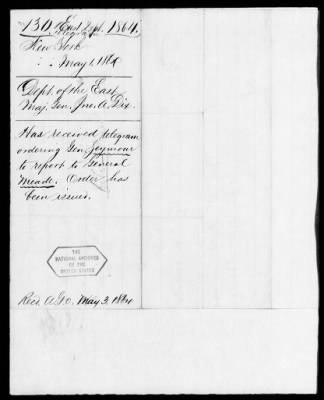 130 East Dept. 1864.
Telegraph
New York
May 1, 1864
Dept. of the East,
Maj. Gen. Jno. A. Dix.
Has received telegram
ordering Gen. Seymour
to report to General
Meade. Order has
been issued.
THE
NATIONAL ARCHIVES
OF THE
UNITED STATES
Recd. A.G.O. May 3, 1864